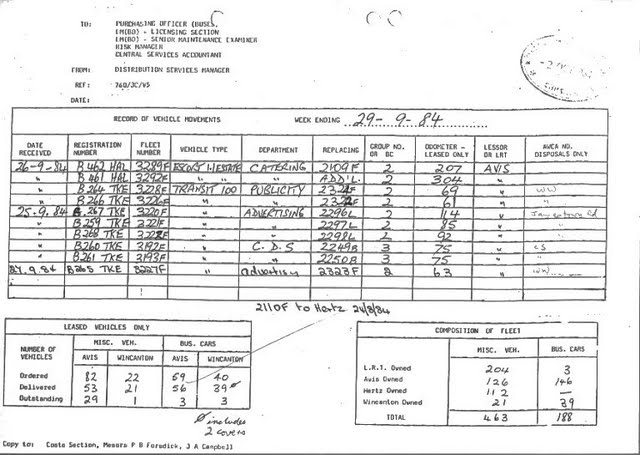 TO: PURCHASING OFFICER (BUSES,
EM(BO) - LICENSING SECTION
EM(BO) - SENIOR MAINTENANCE EXAMINER
RISK MANAGER
CENTRAL SERVICES ACCOUNTANT
FROM: DISTRIBUTION SERVICES MANAGER
REF: 760/JC/VS
DATE:
RECORD OF VEHICLE MOVEMENTS WEEK ENDING 29-9-84
DATE RECEIVED REGISTRATION NUMBER FLEET NUMBER VEHICLE TYPE DEPARTMENT REPLACING GROUP NO. OR BC ODOMETER - LEASED ONLY LESSOR OR LRT AWCA NO. DISPOSALS ONLY
26-9-84 B 462 HAL 3289F ESCORT L/ESTATE CATERING 2109F 2 207 AVIS
" B 461 HAL 3292F " " ADD'L. 2 304 "
" B264 TKE 3228F TRANSIT 100 PUBLICITY 2 69 " WW
" B266 TKE 3226F " " 2322F 2 61 " "
25.9.84 B.267 TKE 3220F " ADVERTISING 2296L 2 114 "
" B259 TKE " " 2297L 2 85 " "
" B268 TKE " " 2298L 2 92 " "
" B260 TKE 3192F " C.D.S 2249B 3 75 " CS
" B261 TKE 3193F " " 2250B 3 75 " "
27.9.84 B265 TKE 3227F " advertising 2323F 2 63 " WW
2110F to Hertz 24/8/84
LEASED VEHICLES ONLY
NUMBER OF VEHICLES MISC. VEH. BUS. CARS
AVIS WINCANTON AVIS WINCANTON
Ordered 82 22 59 40
Delivered 53 21 56 39ø
Outstanding 29 1 3 3
ø includes
2 covers
COMPOSITION OF FLEET
MISC. VEH. BUS. CARS
L.R.T. Owned 204 3
Avis Owned 126 146
Hertz Owned 112 —
Wincanton Owned 21 39
TOTAL 463 188
Copy to: Costs Section, Messrs P B Forsdick, J A Campbell